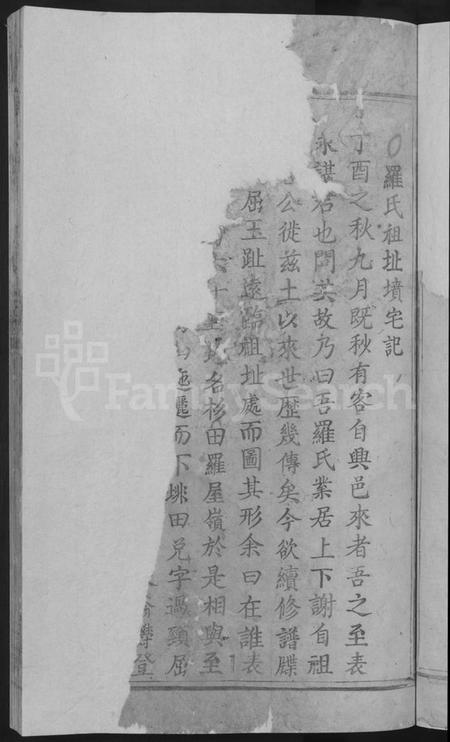 羅氏祖址墳宅記
丁酉之秋九月既秋有客自興邑來者吾之至表
永謀君也問其故乃曰吾羅氏業居上下謝自祖
公徙茲土以來世歷幾傳矣今欲續修譜牒
屈玉趾遠臨祖址處而圖其形余曰在誰表
名杉田羅屋嶺於是相與至
迤邐而下垗田兌字過頸屈
登
FamilySearch